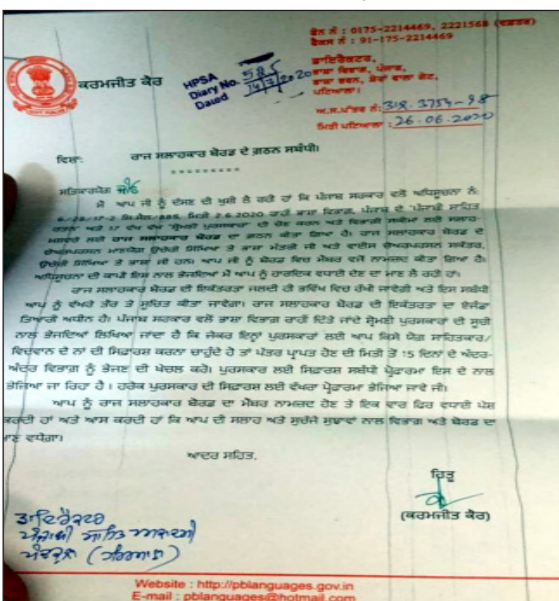 ਫੋਨ ਨੰ : 0175-2214469, 2221568 (ਦਫ਼ਤਰ)
ਫੈਕਸ ਨੰ : 91-175-2214469
ਡਾਇਰੈਕਟਰ,
ਭਾਸ਼ਾ ਵਿਭਾਗ, ਪੰਜਾਬ,
ਭਾਸ਼ਾ ਭਵਨ, ਸ਼ੇਰਾਂ ਵਾਲਾ ਗੇਟ,
ਪਟਿਆਲਾ।
ਕਰਮਜੀਤ ਕੌਰ
HPSA
Diary No. 585
Dated 14/7/2020
ਅ.ਸ.ਪੱਤਰ ਨੰ:
ਮਿਤੀ ਪਟਿਆਲਾ : 26-06-2020
ਵਿਸ਼ਾ: ਰਾਜ ਸਲਾਹਕਾਰ ਬੋਰਡ ਦੇ ਗਠਨ ਸਬੰਧੀ।
ਸਤਿਕਾਰਯੋਗ ਜੀਓ
ਮੈਂ ਆਪ ਜੀ ਨੂੰ ਦੱਸਣ ਦੀ ਖੁਸ਼ੀ ਲੈ ਰਹੀ ਹਾਂ ਕਿ ਪੰਜਾਬ ਸਰਕਾਰ ਵਲੋਂ ਅਧਿਸੂਚਨਾ ਨੰ:
ਮਿਤੀ 2.6.2020 ਰਾਹੀਂ ਭਾਸ਼ਾ ਵਿਭਾਗ, ਪੰਜਾਬ ਦੇ 'ਪੰਜਾਬੀ ਸਾਹਿਤ
ਰਤਨ' ਅਤੇ 17 ਵੱਖ ਵੱਖ 'ਸ਼੍ਰੋਮਣੀ ਪੁਰਸਕਾਰਾਂ' ਦੀ ਚੋਣ ਕਰਨ ਅਤੇ ਵਿਭਾਗੀ ਸਕੀਮਾਂ ਲਈ ਸਲਾਹ-
ਮਸ਼ਵਰੇ ਲਈ ਰਾਜ ਸਲਾਹਕਾਰ ਬੋਰਡ ਦਾ ਗਠਨ ਕੀਤਾ ਗਿਆ ਹੈ। ਰਾਜ ਸਲਾਹਕਾਰ ਬੋਰਡ ਦੇ
ਚੇਅਰਪਰਸਨ ਮਾਣਯੋਗ ਉਚੇਰੀ ਸਿੱਖਿਆ ਤੇ ਭਾਸ਼ਾ ਮੰਤਰੀ ਜੀ ਅਤੇ ਵਾਈਸ ਚੇਅਰਪਰਸਨ ਸਕੱਤਰ,
ਉਚੇਰੀ ਸਿੱਖਿਆ ਤੇ ਭਾਸ਼ਾ ਜੀ ਹਨ। ਆਪ ਜੀ ਨੂੰ ਬੋਰਡ ਵਿਚ ਮੈਂਬਰ ਵਜੋਂ ਨਾਮਜ਼ਦ ਕੀਤਾ ਗਿਆ ਹੈ।
ਅਧਿਸੂਚਨਾ ਦੀ ਕਾਪੀ ਇਸ ਨਾਲ ਭੇਜਦਿਆਂ ਮੈਂ ਆਪ ਨੂੰ ਹਾਰਦਿਕ ਵਧਾਈ ਦੇਣ ਦਾ ਮਾਣ ਲੈ ਰਹੀ ਹਾਂ।
ਰਾਜ ਸਲਾਹਕਾਰ ਬੋਰਡ ਦੀ ਇਕੱਤਰਤਾ ਜਲਦੀ ਹੀ ਭਵਿੱਖ ਵਿਚ ਰੱਖੀ ਜਾਵੇਗੀ ਅਤੇ ਇਸ ਸਬੰਧੀ
ਆਪ ਨੂੰ ਵੱਖਰੇ ਤੌਰ ਤੇ ਸੂਚਿਤ ਕੀਤਾ ਜਾਵੇਗਾ। ਰਾਜ ਸਲਾਹਕਾਰ ਬੋਰਡ ਦੀ ਇਕੱਤਰਤਾ ਦਾ ਏਜੰਡਾ
ਤਿਆਰੀ ਅਧੀਨ ਹੈ। ਪੰਜਾਬ ਸਰਕਾਰ ਵਲੋਂ ਭਾਸ਼ਾ ਵਿਭਾਗ ਰਾਹੀਂ ਦਿੱਤੇ ਜਾਂਦੇ ਸ਼੍ਰੋਮਣੀ ਪੁਰਸਕਾਰਾਂ ਦੀ ਸੂਚੀ
ਨਾਲ ਭੇਜਦਿਆਂ ਲਿਖਿਆ ਜਾਂਦਾ ਹੈ ਕਿ ਜੇਕਰ ਇਨ੍ਹਾਂ ਪੁਰਸਕਾਰਾਂ ਲਈ ਆਪ ਕਿਸੇ ਯੋਗ ਸਾਹਿਤਕਾਰ/
ਵਿਦਵਾਨ ਦੇ ਨਾਂ ਦੀ ਸਿਫ਼ਾਰਸ਼ ਕਰਨਾ ਚਾਹੁੰਦੇ ਹੋ ਤਾਂ ਪੱਤਰ ਪ੍ਰਾਪਤ ਹੋਣ ਦੀ ਮਿਤੀ ਤੋਂ 15 ਦਿਨਾਂ ਦੇ ਅੰਦਰ-
ਅੰਦਰ ਵਿਭਾਗ ਨੂੰ ਭੇਜਣ ਦੀ ਖੇਚਲ ਕਰੋ। ਪੁਰਸਕਾਰਾਂ ਲਈ ਸਿਫ਼ਾਰਸ਼ ਸਬੰਧੀ ਪ੍ਰੋਫਾਰਮਾ ਇਸ ਦੇ ਨਾਲ
ਭੇਜਿਆ ਜਾ ਰਿਹਾ ਹੈ। ਹਰੇਕ ਪੁਰਸਕਾਰ ਦੀ ਸਿਫ਼ਾਰਸ਼ ਲਈ ਵੱਖਰਾ ਪ੍ਰੋਫਾਰਮਾ ਭੇਜਿਆ ਜਾਵੇ ਜੀ।
ਆਪ ਨੂੰ ਰਾਜ ਸਲਾਹਕਾਰ ਬੋਰਡ ਦਾ ਮੈਂਬਰ ਨਾਮਜ਼ਦ ਹੋਣ ਤੇ ਇਕ ਵਾਰ ਫਿਰ ਵਧਾਈ ਪੇਸ਼
ਕਰਦੀ ਹਾਂ ਅਤੇ ਆਸ ਕਰਦੀ ਹਾਂ ਕਿ ਆਪ ਦੀ ਸਲਾਹ ਅਤੇ ਸੁਚੱਜੇ ਸੁਝਾਵਾਂ ਨਾਲ ਵਿਭਾਗ ਅਤੇ ਬੋਰਡ ਦਾ
ਮਾਣ ਵਧੇਗਾ।
ਆਦਰ ਸਹਿਤ,
ਹਿਤੂ
(ਕਰਮਜੀਤ ਕੌਰ)
ਡਾਇਰੈਕਟਰ
ਪੰਜਾਬੀ ਸਾਹਿਤ ਅਕਾਦਮੀ
ਪੰਚਕੂਲਾ (ਹਰਿਆਣਾ)
Website : http://pblanguages.gov.in
E-mail : pblanguages@hotmail.com